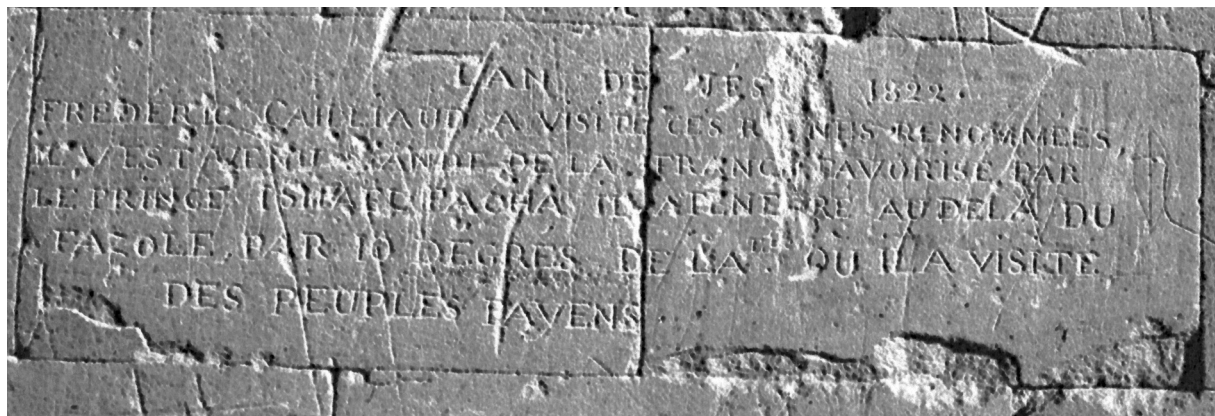 L'AN DE JES 1822.
FREDERIC CAILLIAUD, A VISITE CES RENOMMÉES,
IL Y EST VENU DE LA FRANCE FAVORISÉ PAR
LE PRINCE ISMAEL PACHA, IL A PENETRE AU DELA DU
FAZOLE, PAR 10 DEGRES DE LAT. OU IL A VISITE
DES PEUPLES PAYENS